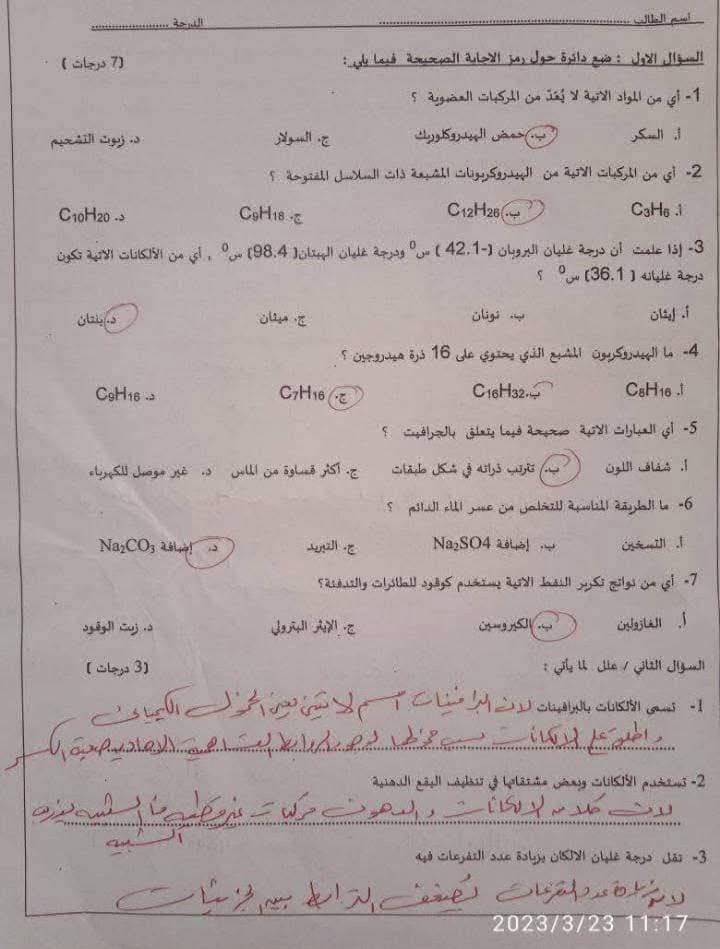 اسم الطالب ........................ الدرجة ................
السؤال الاول : ضع دائرة حول رمز الاجابة الصحيحة فيما يلي : (7 درجات)
1- أي من المواد الاتية لا يُعَدّ من المركبات العضوية ؟
أ. السكر ب. حمض الهيدروكلوريك ج. السولار د. زيوت التشحيم
2- أي من المركبات الاتية من الهيدروكربونات المشبعة ذات السلاسل المفتوحة ؟
أ. C3H6 ب. C12H26 ج. C9H18 د. C10H20
3- إذا علمت أن درجة غليان البروبان (-42.1) س0 ودرجة غليان الهبتان(98.4) س0 , أي من الألكانات الاتية تكون
درجة غليانه (36.1) س0 ؟
أ. إيثان ب. نونان ج. ميثان د. بنتان
4- ما الهيدروكربون المشبع الذي يحتوي على 16 ذرة هيدروجين ؟
أ. C8H16 ب. C16H32 ج. C7H16 د. C9H16
5- أي العبارات الاتية صحيحة فيما يتعلق بالجرافيت ؟
أ. شفاف اللون ب. تترتب ذراته في شكل طبقات ج. أكثر قساوة من الماس د. غير موصل للكهرباء
6- ما الطريقة المناسبة للتخلص من عسر الماء الدائم ؟
أ. التسخين ب. إضافة Na2SO4 ج. التبريد د. إضافة Na2CO3
7- أي من نواتج تكرير النفط الاتية يستخدم كوقود للطائرات والتدفئة؟
أ. الغازولين ب. الكيروسين ج. الإيثر البترولي د. زيت الوقود
السؤال الثاني / علل لما يأتي : (3 درجات)
1- تسمى الألكانات بالبرافينات لان البرافينات اسم لاتيني يعني الخمول الكيميائي
واطلق على الالكانات بسبب خمولها لوجود الروابط التساهمية الاحادية صعبة الكسر
2- تستخدم الألكانات وبعض مشتقاتها في تنظيف البقع الدهنية
لان كلا من الالكانات والدهون مركبات غير قطبية فالشبيه يذيب
الشبيه
3- تقل درجة غليان الالكان بزيادة عدد التفرعات فيه
لان زيادة عدد التفرعات تُضعف الترابط بين الجزيئات
2023/3/23 11:17